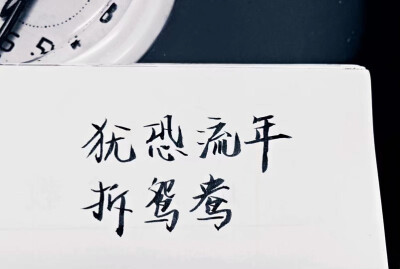 犹恐流年
拆鸳鸯